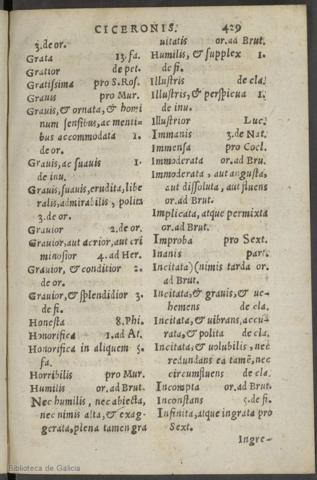 CICERONIS. 429
3. de or.
Grata 13. fa.
Gratior de pet.
Gratissima pro S. Ros.
Grauis pro Mur.
Grauis, & ornata, & homi
num sensibus, ac menti-
bus accommodata 1.
de or.
Grauis, ac suauis 1.
de inu.
Grauis, suauis, erudita, libe
ralis, admirabilis, polita
3. de or.
Grauior 2. de or.
Grauior, aut acrior, aut cri
minosior 4. ad Her.
Grauior, & conditior 2.
de or.
Grauior, & splendidior 3.
de fi.
Honesta 8. Phi.
Honorifica 1. ad At.
Honorifica in aliquem 5.
fa.
Horribilis pro Mur.
Humilis or. ad Brut.
Nec humilis, nec abiecta,
nec nimis alta, & exag-
gerata, plena tamen gra
uitatis or. ad Brut.
Humilis, & supplex 1.
de fi.
Illustris de cla.
Illustris, & perspicua 1.
de inu.
Illustrior Luc.
Immanis 3. de Nat.
Immensa pro Cocl.
Immoderata or. ad Bru.
Immoderata, aut angusta,
aut dissoluta, aut fluens
or. ad Brut.
Implicata, atque permixta
or. ad Brut.
Improba pro Sext.
Inanis part.
Incitata) (nimis tarda or.
ad Brut.
Incitata, & grauis, & ue-
hemens de cla.
Incitata, & uibrans, accu-
rata, & polita de cla.
Incitata, & uolubilis, nec
redundans ea tamē, nec
circumfluens de cla.
Incompta or. ad Brut.
Inconstans 5. de fi.
Infinita, atque ingrata pro
Sext.
Ingre-
Biblioteca de Galicia